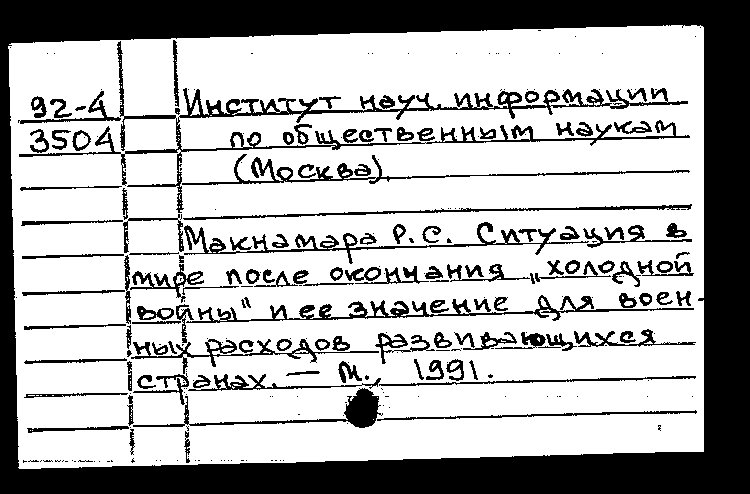 92-4 Институт науч. информации
3504 по общественным наукам
(Москва).
Макнамара Р.С. Ситуация в
мире после окончания „холодной
войны" и ее значение для воен-
ных расходов развивающихся
странах. — М., 1991.